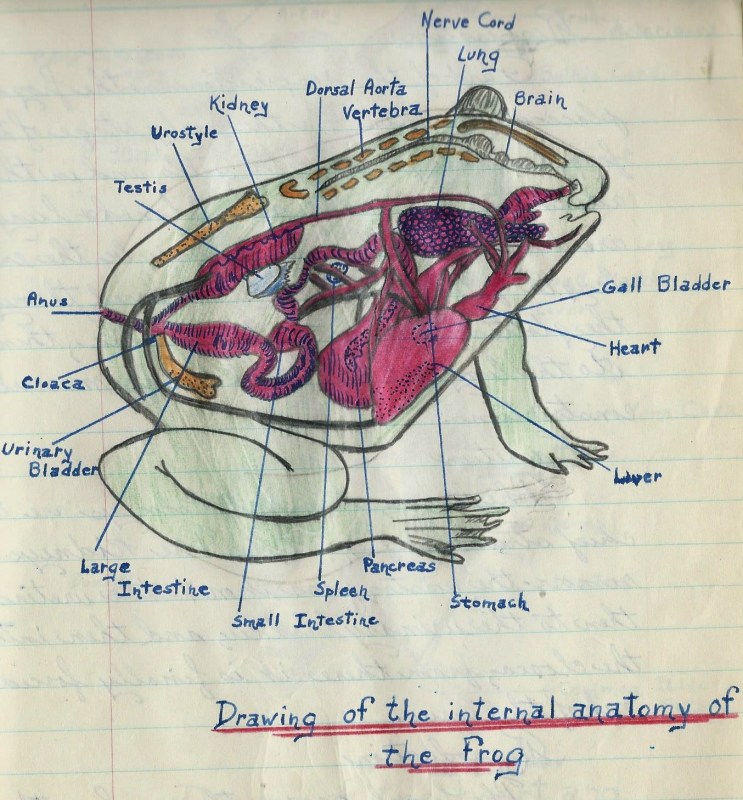 Nerve Cord
Lung
Dorsal Aorta
Vertebra
Brain
Kidney
Urostyle
Testis
Anus
Gall Bladder
Heart
Cloaca
Urinary
Bladder
Liver
Large
Intestine
Pancreas
Spleen
Stomach
Small Intestine
Drawing of the internal anatomy of
the frog